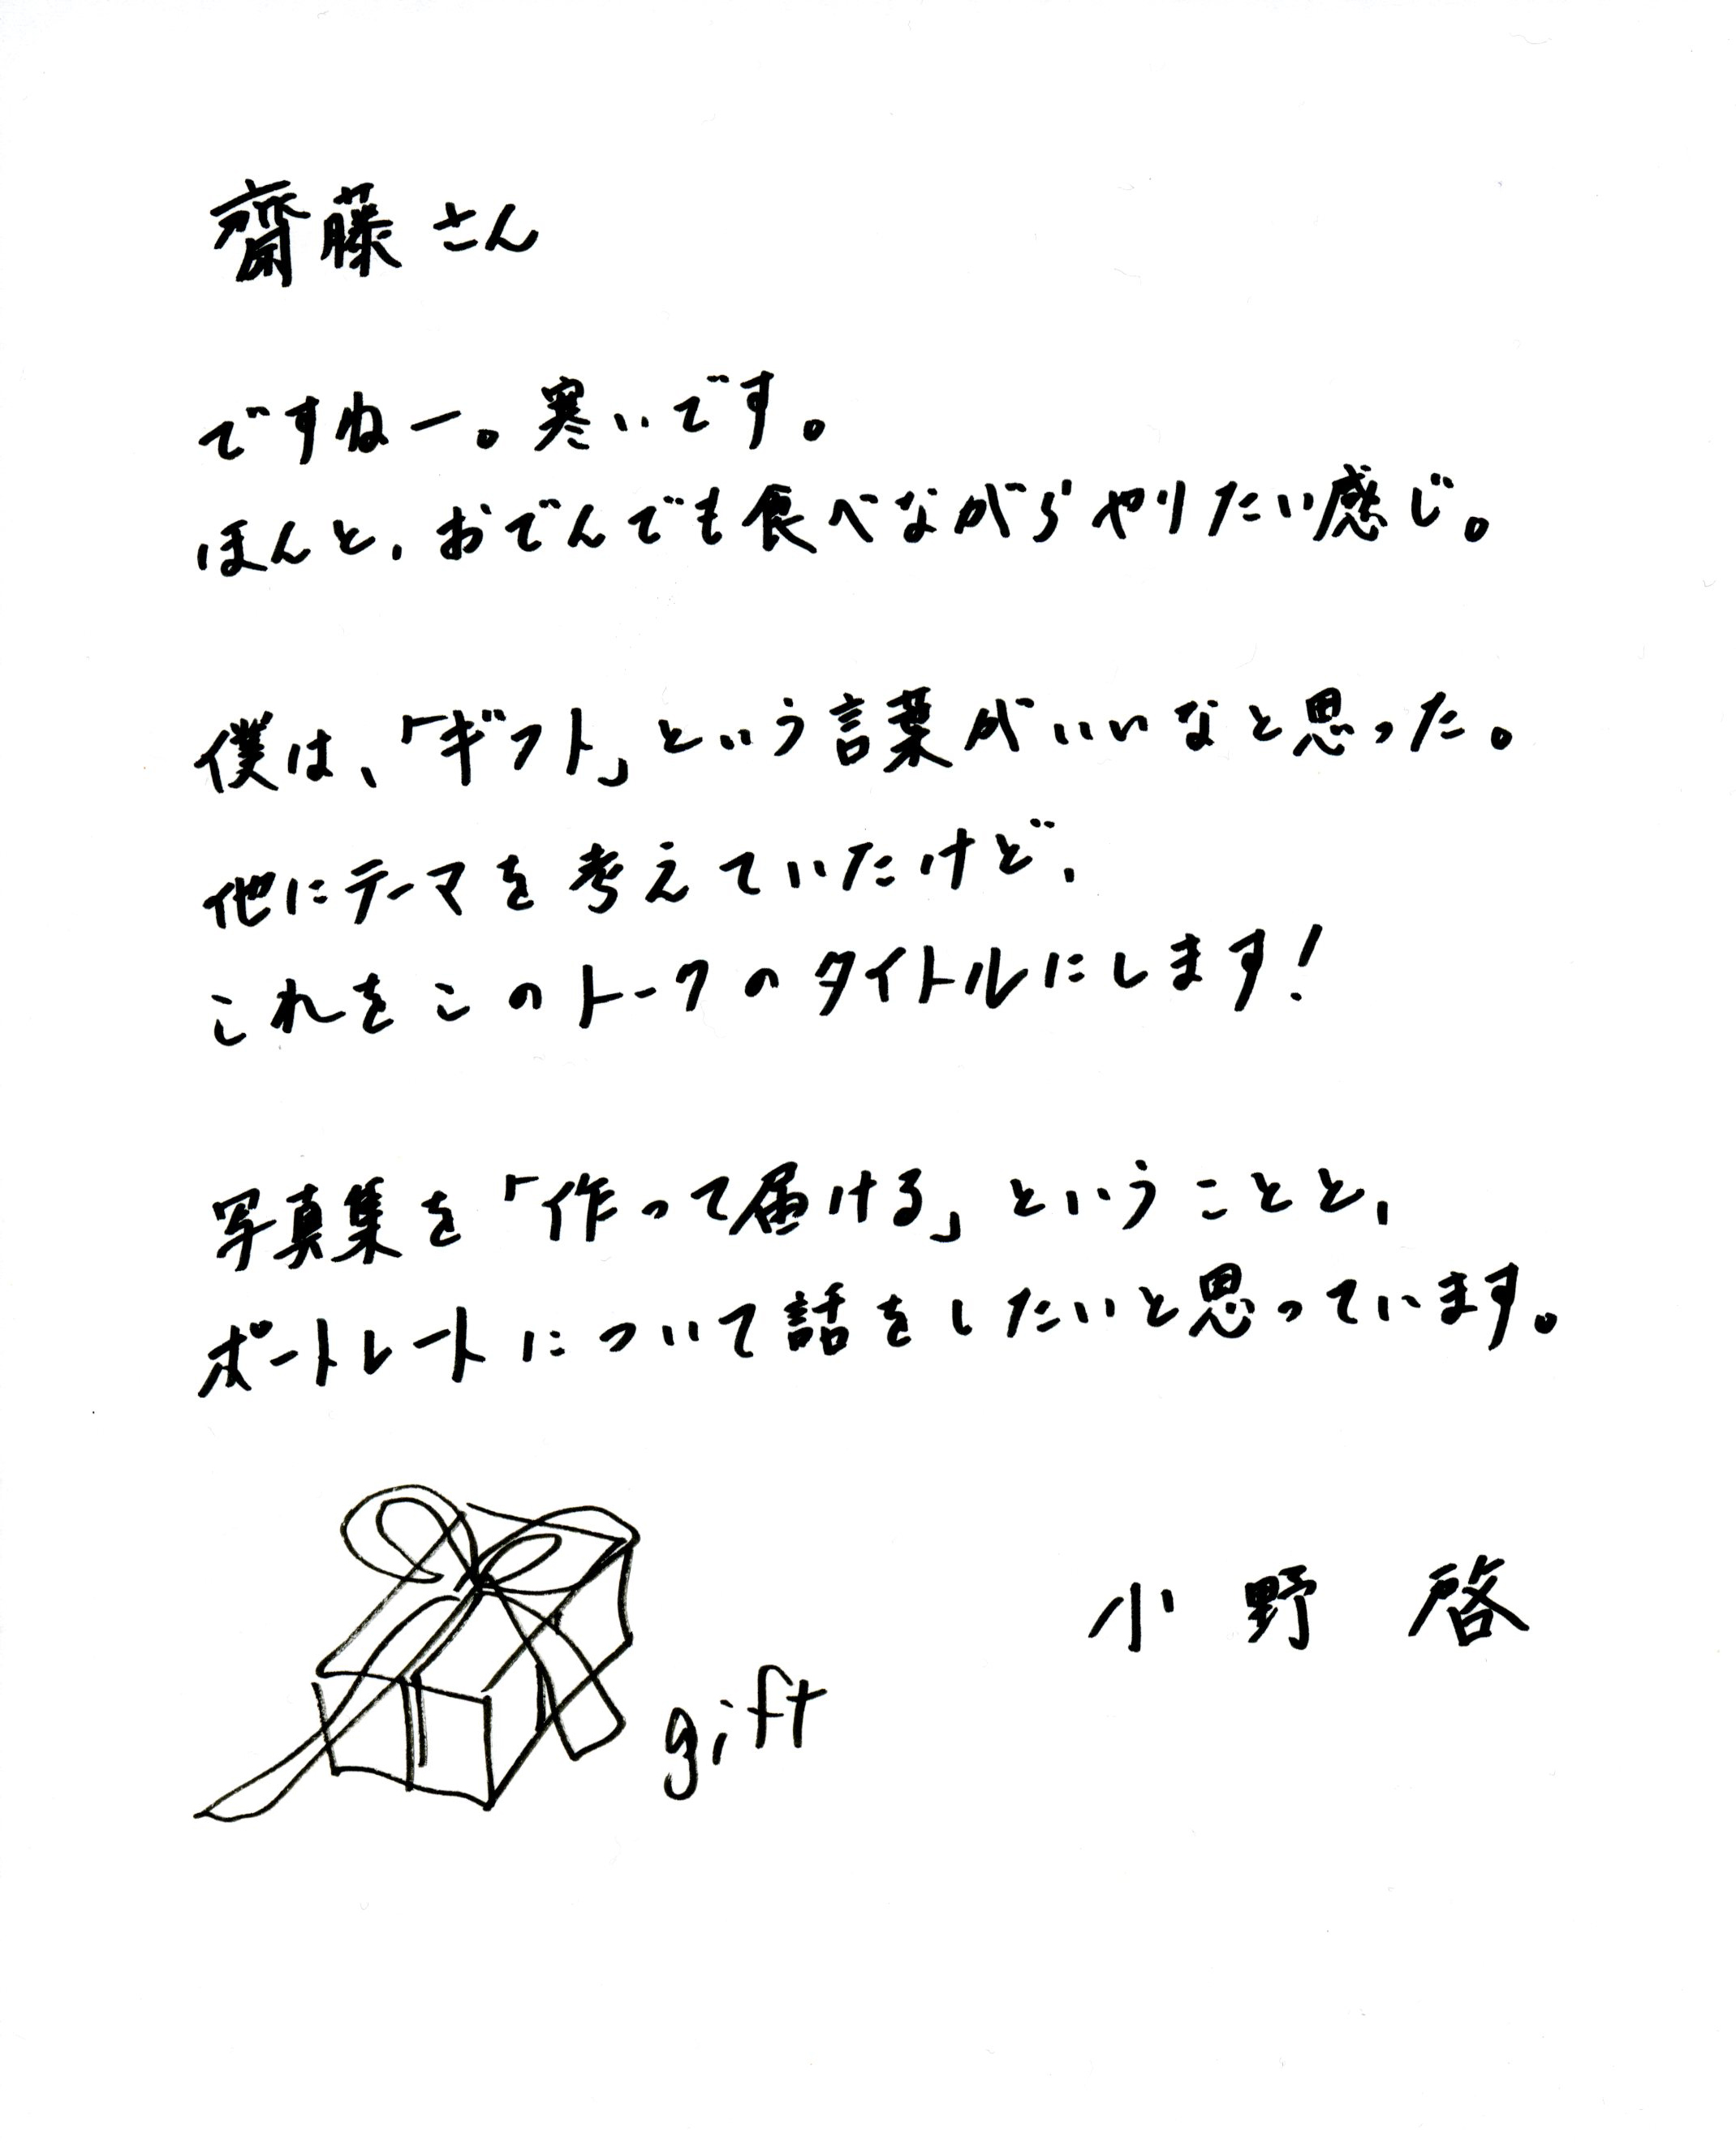 齋藤さん
ですねー。寒いです。
ほんと、おでんでも食べながらやりたい感じ。
僕は、「ギフト」という言葉がいいなと思った。
他にテーマを考えていたけど、
これをこのトークのタイトルにします!
写真集を「作って届ける」ということと、
ポートレートについて話をしたいと思っています。
小野 啓
gift